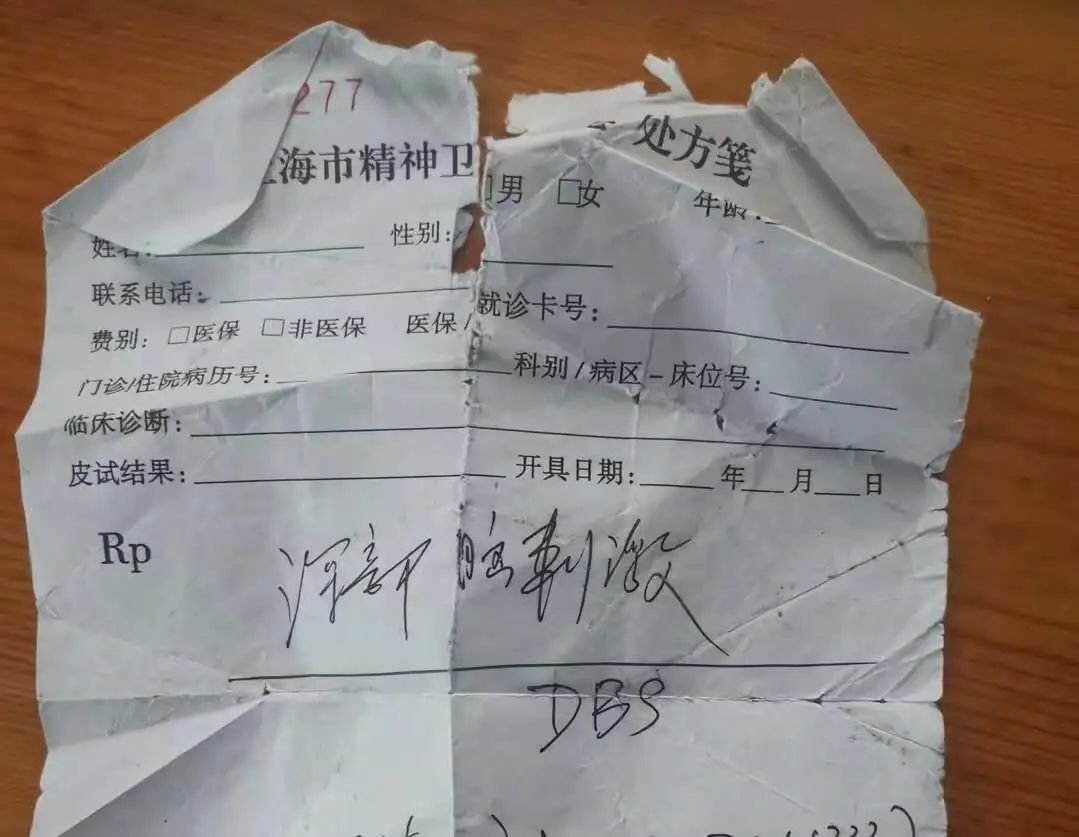 277
海市精神卫
处方笺
□男 □女 年龄:
姓名: 性别:
联系电话: 就诊卡号:
费别: □医保 □非医保 医保/
门诊/住院病历号: 科别/病区-床位号:
临床诊断:
皮试结果: 开具日期: 年 月 日
Rp
深部脑刺激
DBS